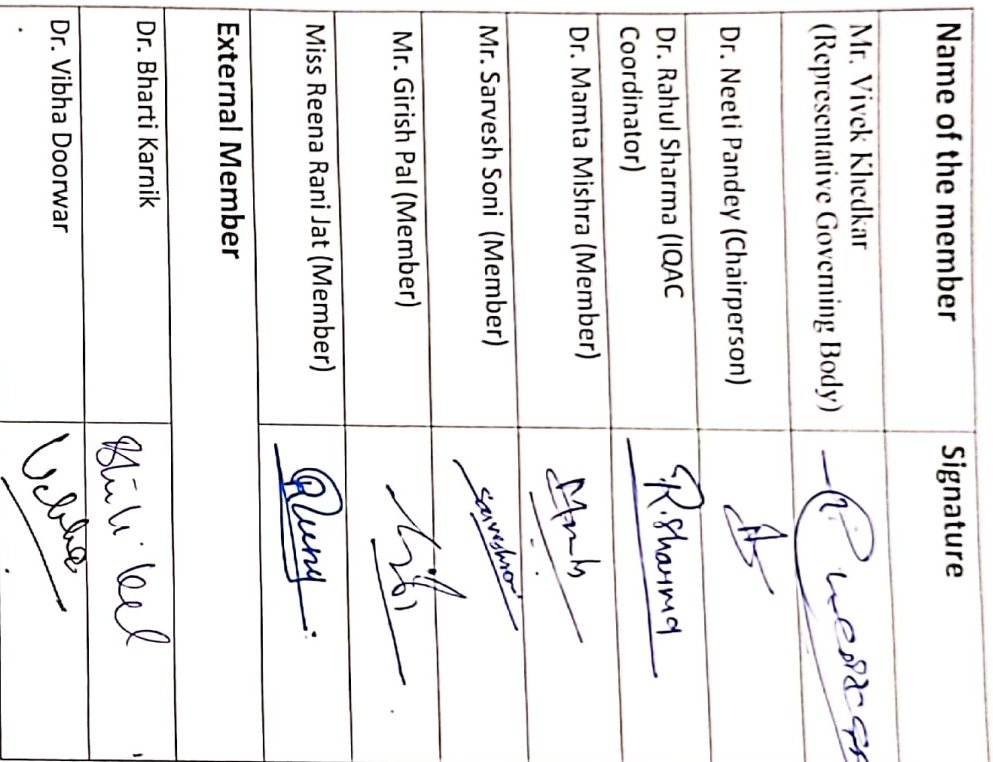 Name of the member Signature
Mr. Vivek Khedkar
(Representative Governing Body)
Dr. Neeti Pandey (Chairperson)
Dr. Rahul Sharma (IQAC
Coordinator) R.Sharma
Dr. Mamta Mishra (Member)
Mr. Sarvesh Soni (Member)
Mr. Girish Pal (Member)
Miss Reena Rani Jat (Member)
External Member
Dr. Bharti Karnik
Dr. Vibha Doorwar Vibha